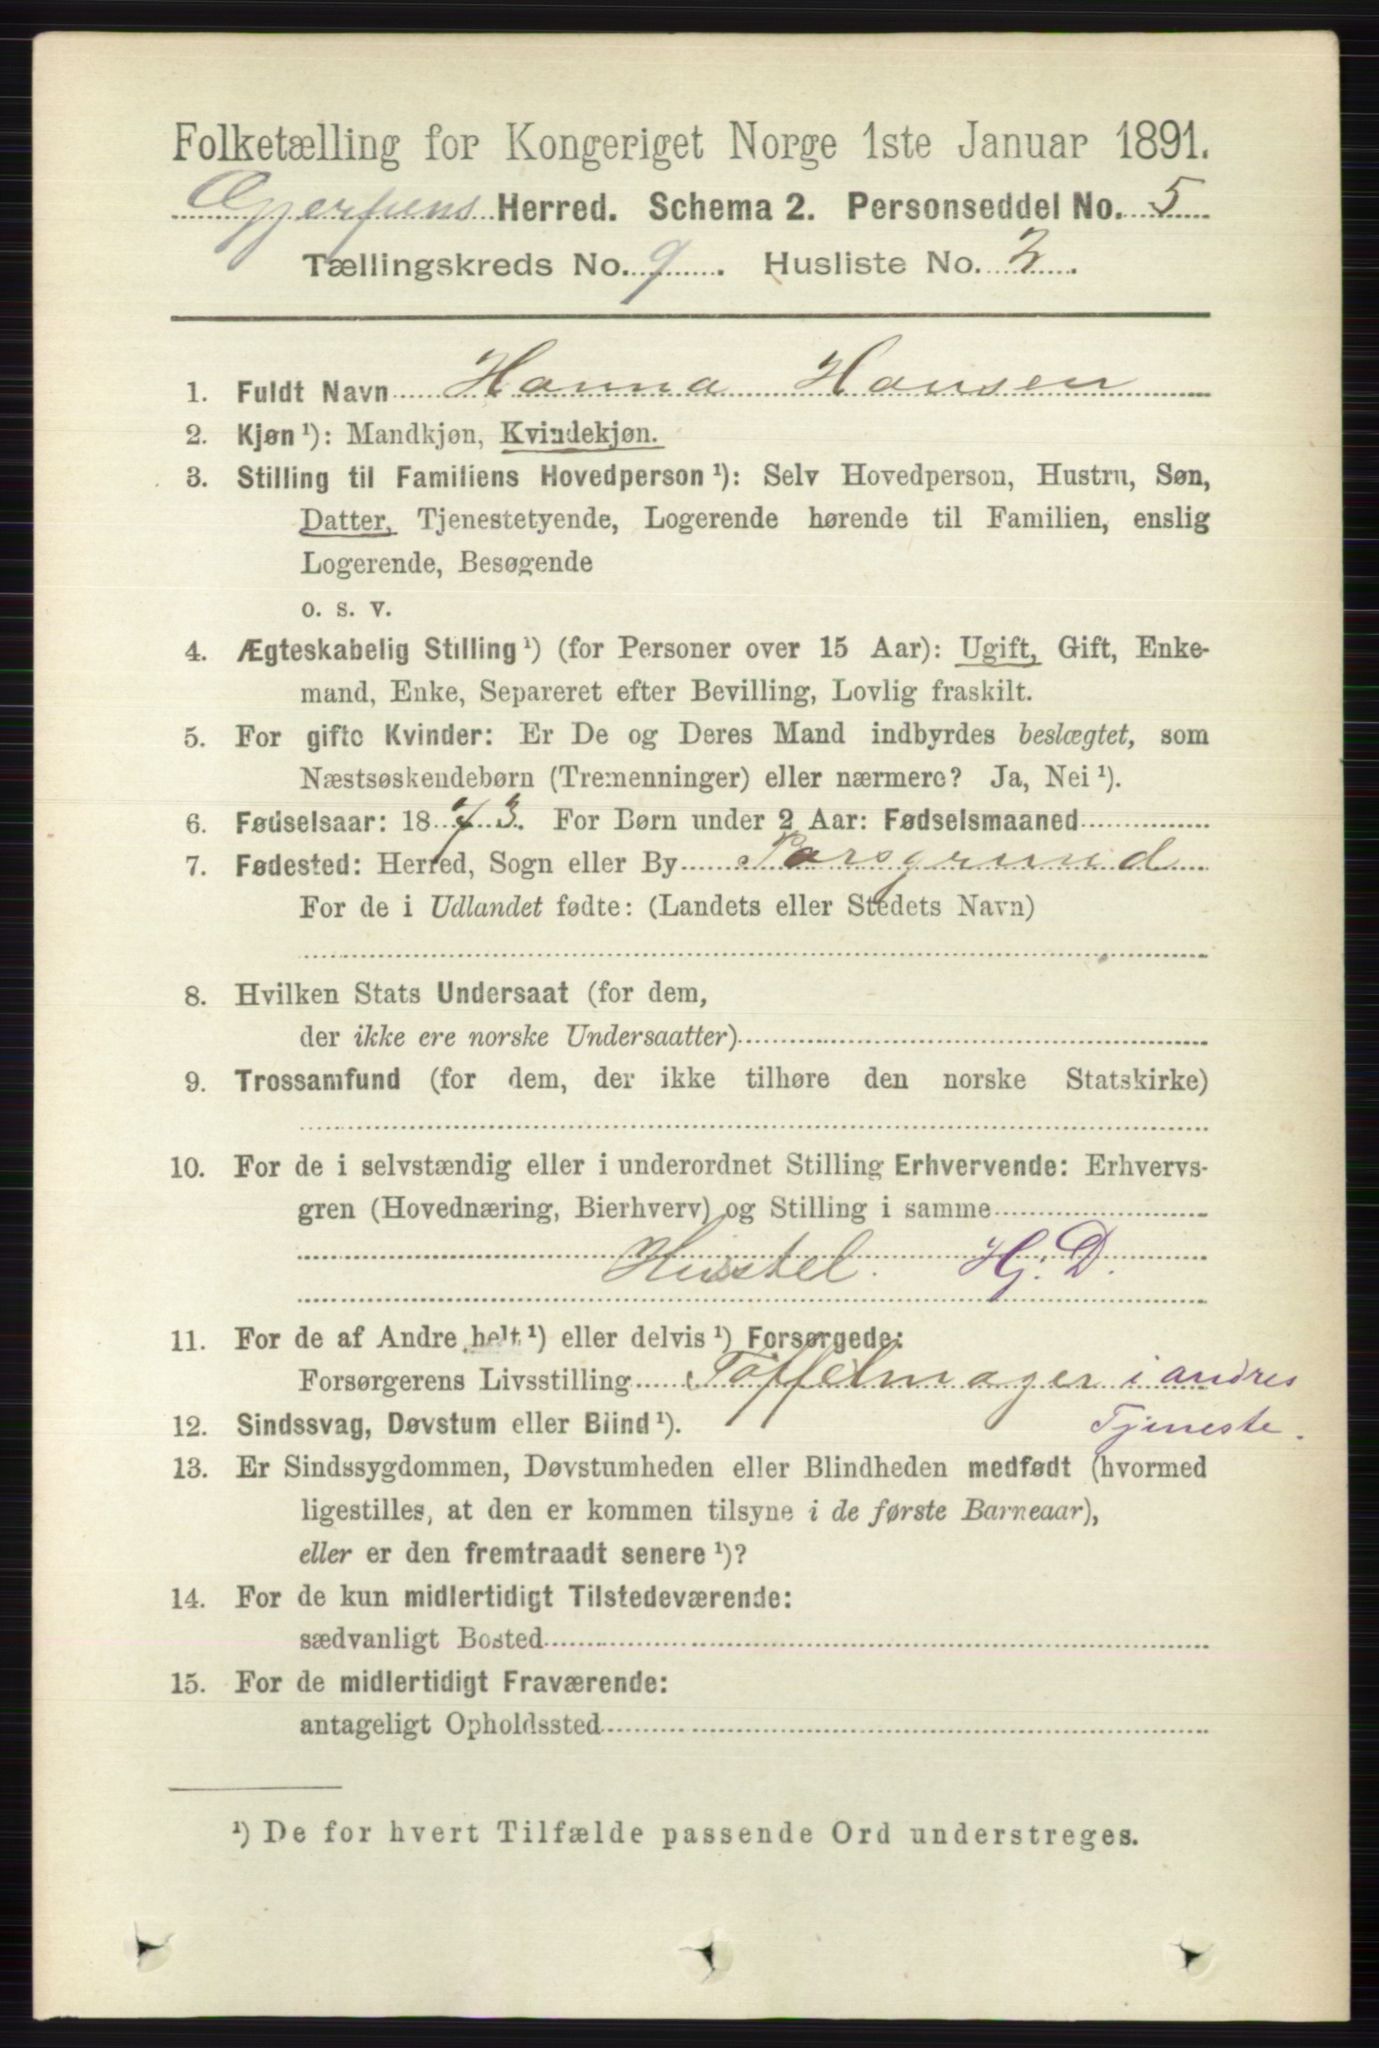 Folketælling for Kongeriget Norge 1ste Januar 1891.
Gjerpens Herred. Schema 2. Personseddel No. 5
Tællingskreds No. 9. Husliste No. 2.
1. Fuldt Navn Hanna Hansen
2. Kjøn ¹): Mandkjøn, Kvindekjøn.
3. Stilling til Familiens Hovedperson ¹): Selv Hovedperson, Hustru, Søn,
Datter, Tjenestetyende, Logerende hørende til Familien, enslig
Logerende, Besøgende
o. s. v.
4. Ægteskabelig Stilling ¹) (for Personer over 15 Aar): Ugift, Gift, Enke-
mand, Enke, Separeret efter Bevilling, Lovlig fraskilt.
5. For gifte Kvinder: Er De og Deres Mand indbyrdes beslægtet, som
Næstsøskendebørn (Tremenninger) eller nærmere? Ja, Nei ¹).
6. Fødselsaar: 1873. For Børn under 2 Aar: Fødselsmaaned
7. Fødested: Herred, Sogn eller By Porsgrund
For de i Udlandet fødte: (Landets eller Stedets Navn)
8. Hvilken Stats Undersaat (for dem,
der ikke ere norske Undersaatter)
9. Trossamfund (for dem, der ikke tilhøre den norske Statskirke)
10. For de i selvstændig eller i underordnet Stilling Erhvervende: Erhvervs-
gren (Hovednæring, Bierhverv) og Stilling i samme
Husstel. Hj. D.
11. For de af Andre helt ¹) eller delvis ¹) Forsørgede:
Forsørgerens Livsstilling Tøffelmager i andres
Tjeneste.
12. Sindssvag, Døvstum eller Blind ¹).
13. Er Sindssygdommen, Døvstumheden eller Blindheden medfødt (hvormed
ligestilles, at den er kommen tilsyne i de første Barneaar),
eller er den fremtraadt senere ¹)?
14. For de kun midlertidigt Tilstedeværende:
sædvanligt Bosted
15. For de midlertidigt Fraværende:
antageligt Opholdssted
¹) De for hvert Tilfælde passende Ord understreges.